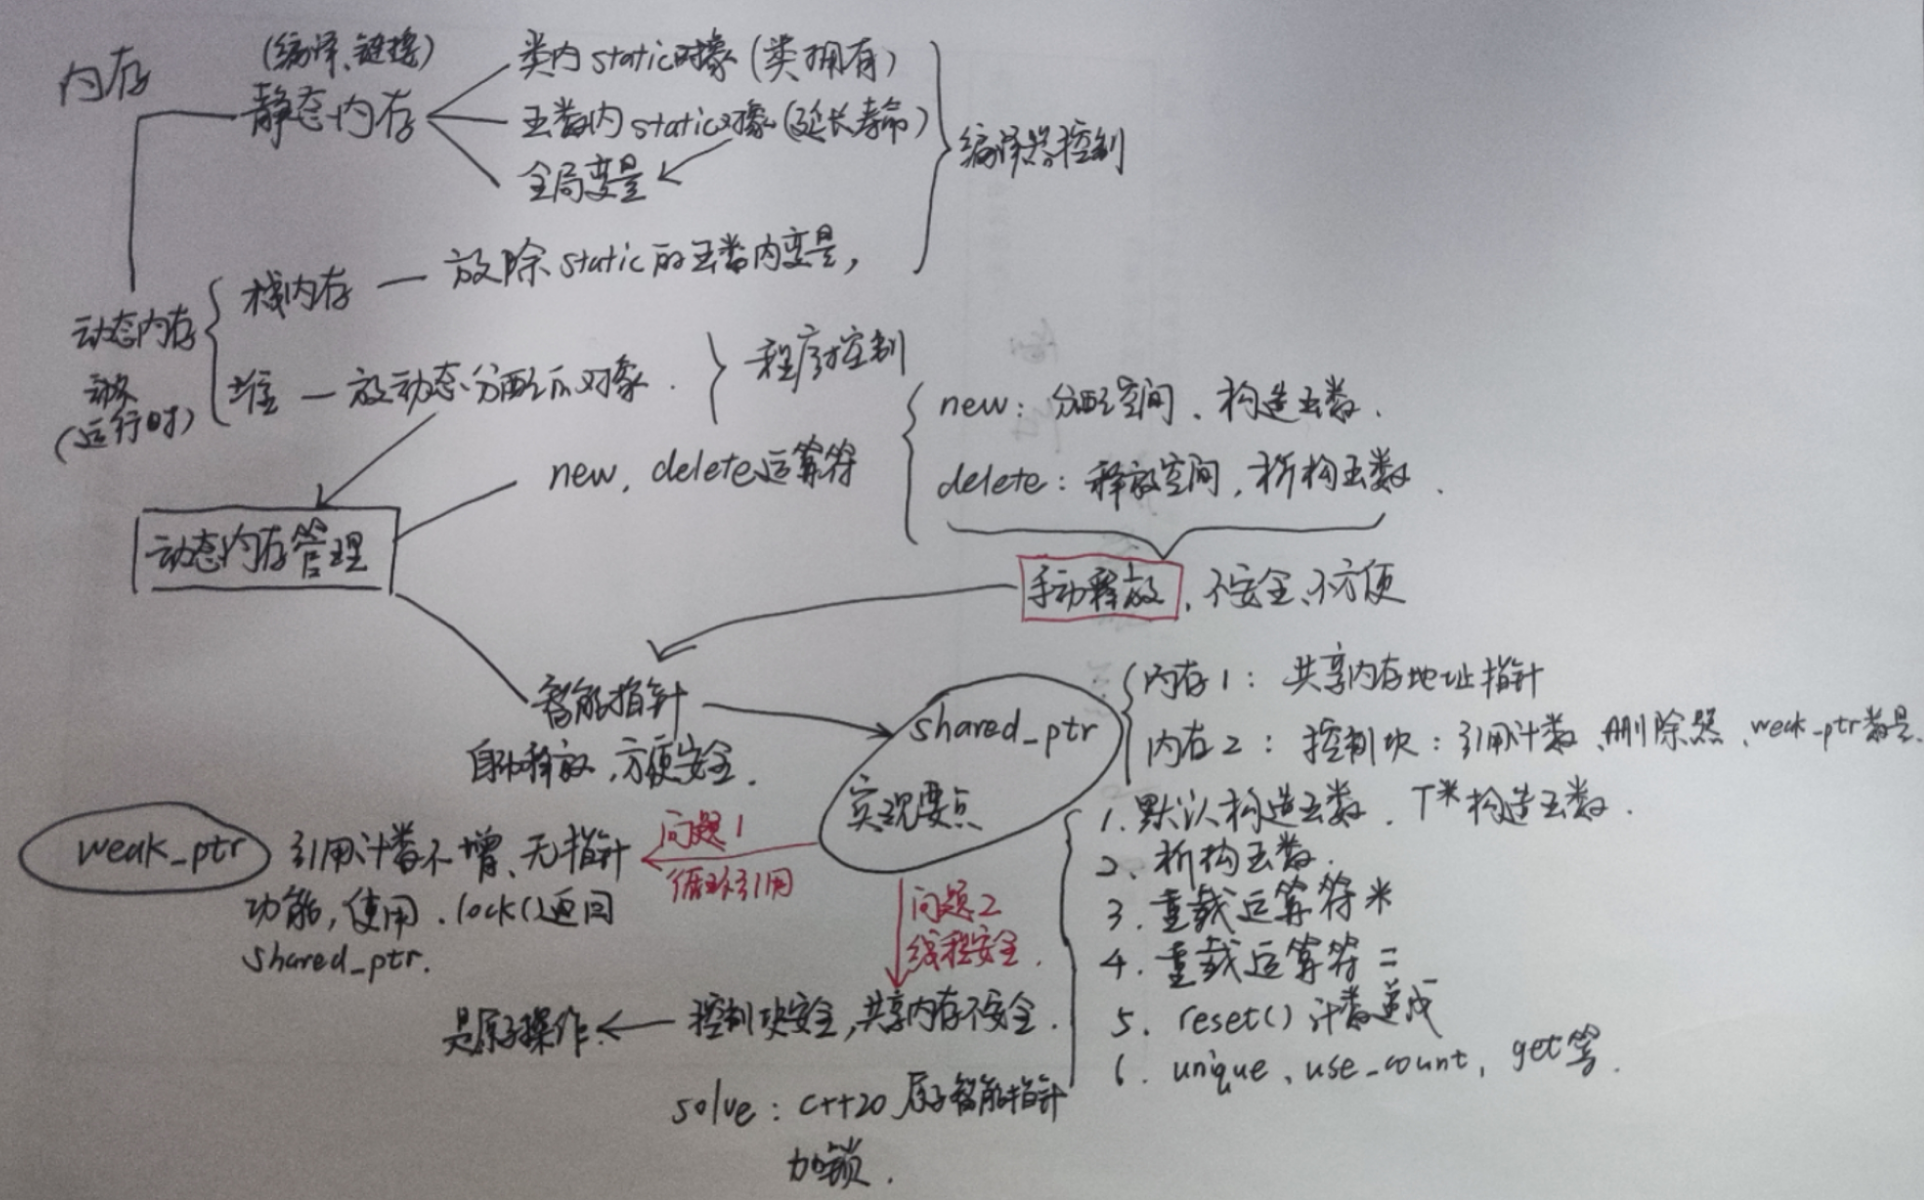 内存
(编译、链接)
静态内存
类内static对象(类拥有)
函数内static对象(延长寿命)
全局变量
编译器控制
动态内存
(运行时)
栈内存 — 放除static的函数内变量,
堆 — 放动态分配的对象.
程序控制
new, delete运算符
new: 分配空间、构造函数.
delete: 释放空间, 析构函数.
动态内存管理
手动释放、不安全、不方便
智能指针
自动释放, 方便安全.
shared_ptr
实现要点
内存1: 共享内存地址指针
内存2: 控制块: 引用计数、删除器、weak_ptr数量.
1. 默认构造函数. T*构造函数.
2. 析构函数.
3. 重载运算符*
4. 重载运算符=
5. reset() 计数递减
6. unique、use_count, get等.
问题1
循环引用
weak_ptr 引用计数不增、无指针
功能, 使用.lock()返回
shared_ptr.
问题2
线程安全.
控制块安全, 共享内存不安全.
是原子操作.
solve: C++20 原子智能指针
加锁.